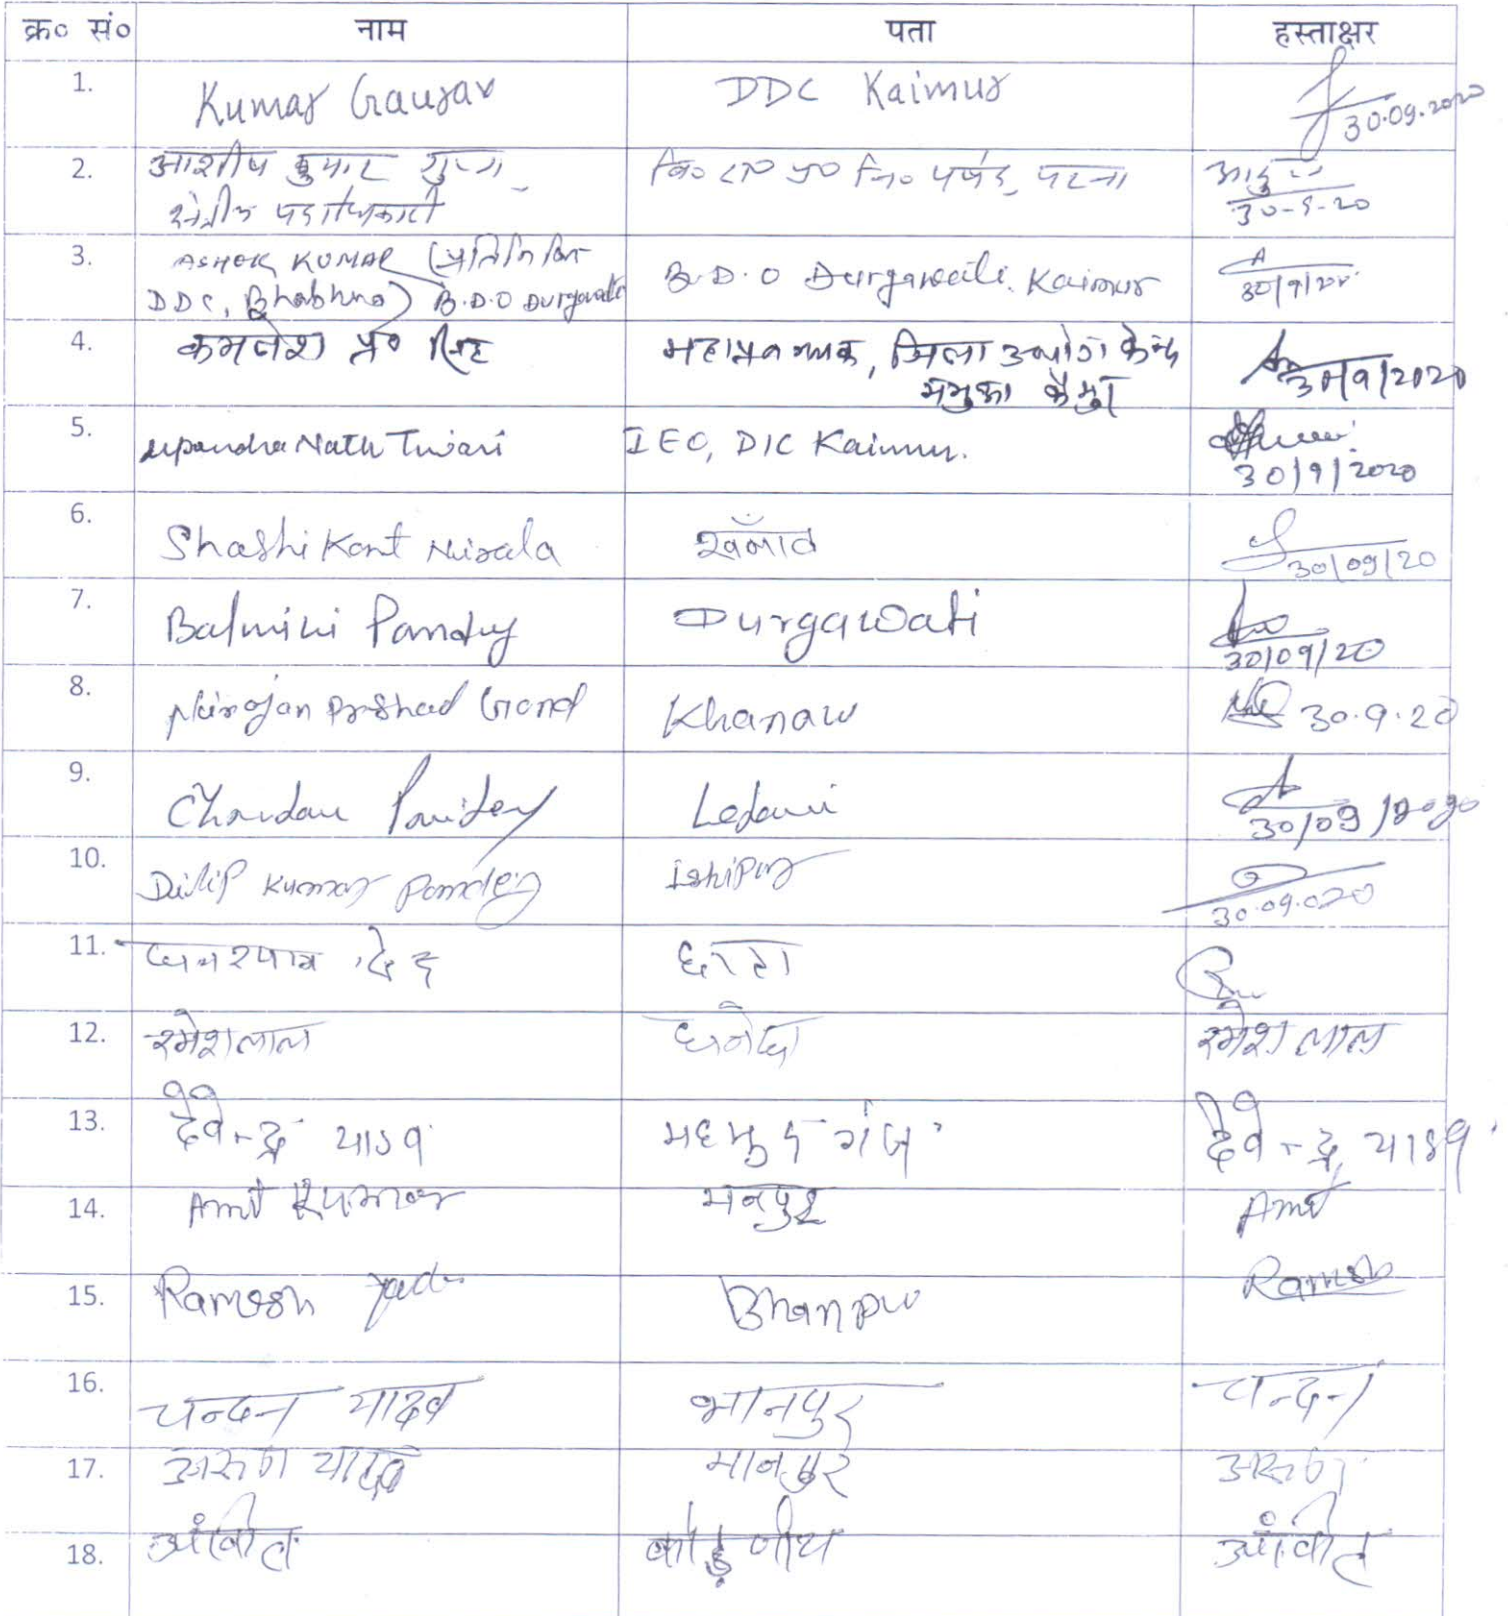 क्र० सं० नाम पता हस्ताक्षर
1. Kumar Gaurav DDC Kaimur 30.09.2020
2. आशीष कुमार गुप्ता, पर्षद, पटना
क्षेत्रीय पदाधिकारी 30-9-20
3. ASHOK KUMAR (प्रतिनिधि B.D.O Durgawati, Kaimur
DDC, Bhabhua) B.D.O Durgawati 30/9/20
4. कमलेश प्र० सिंह महाप्रबन्धक, जिला उद्योग केन्द्र
भभुआ कैमुर 30/9/2020
5. Upendra Nath Tiwari IEO, DIC Kaimur.
30/9/2020
6. Shashi Kant Nirala खनाँव 30/09/20
7. Balmiki Pandey Durgawati 30/09/20
8. Niranjan Prashad Gond Khanaw 30.9.20
9. Chandan Pandey 30/09/2020
10. Dilip Kumar Pandey Ishipur 30.09.020
11. घनश्याम
12. रमेश लाल धनेछा रमेश लाल
13. देवेन्द्र यादव महमुदगंज देवेन्द्र यादव
14. Amit भानपुर Amit
15. Ramesh Yadav Bhanpur Ramesh
16. चन्दन यादव भानपुर चन्दन
17. अरुण यादव भानपुर अरुण
18.